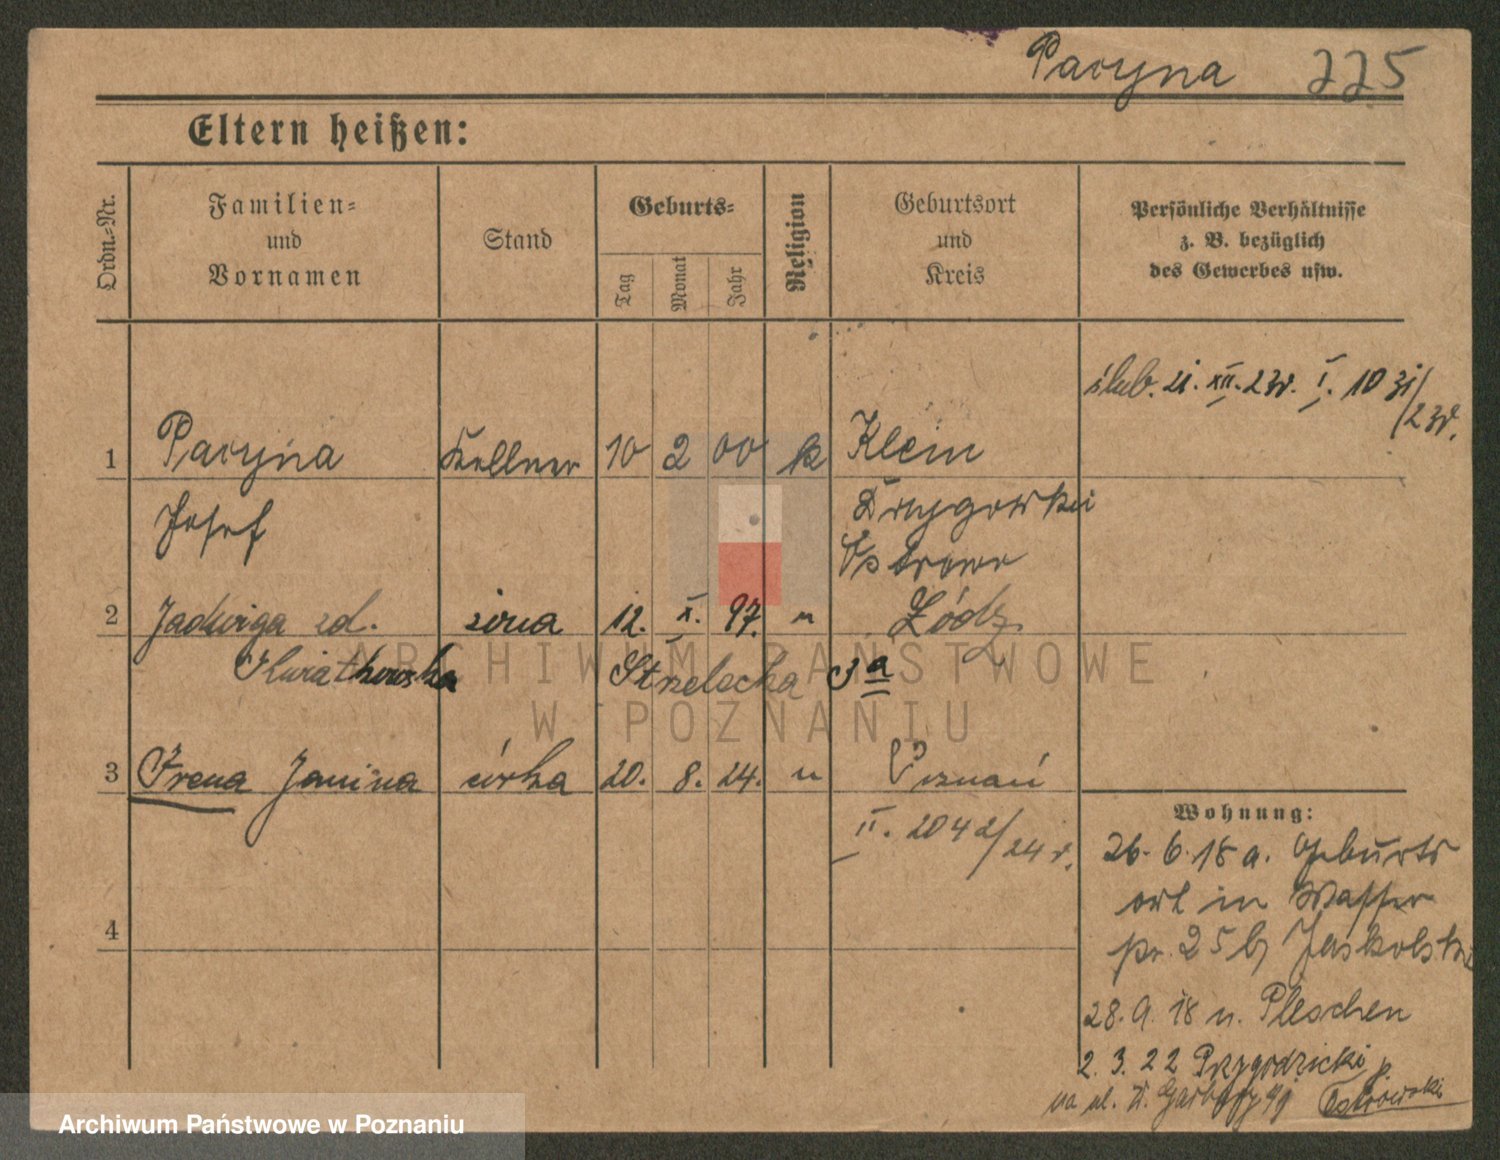 Paryna 225
Eltern heißen:
Ordn.-Nr.
Familien-
und
Vornamen
Stand
Geburts-
Tag
Monat
Jahr
Religion
Geburtsort
und
Kreis
Persönliche Verhältnisse
z. B. bezüglich
des Gewerbes usw.
ślub. 21. XII. 23r. I. 1031/
23r.
1 Paryna Kellner 10 2 00 k Klein
Josef
Ostrowo
2 Jadwiga zd. żona 12. X. 97. " Łódz.
Kwiatkowska Strzelecka 3a
3 Irena Janina córka 20. 8. 24. " Poznań
II. 2042/24 r.
4
Wohnung:
26. 6. 18 a. Geburts
ort in Wasser
pr. 25 b/ Jaskolski
28. 9. 18 n. Pleschen
2. 3. 22 Przygodzicki p.
na ul. W. Garbary 41 Ostrowski
ARCHIWUM PAŃSTWOWE
W POZNANIU
Archiwum Państwowe w Poznaniu